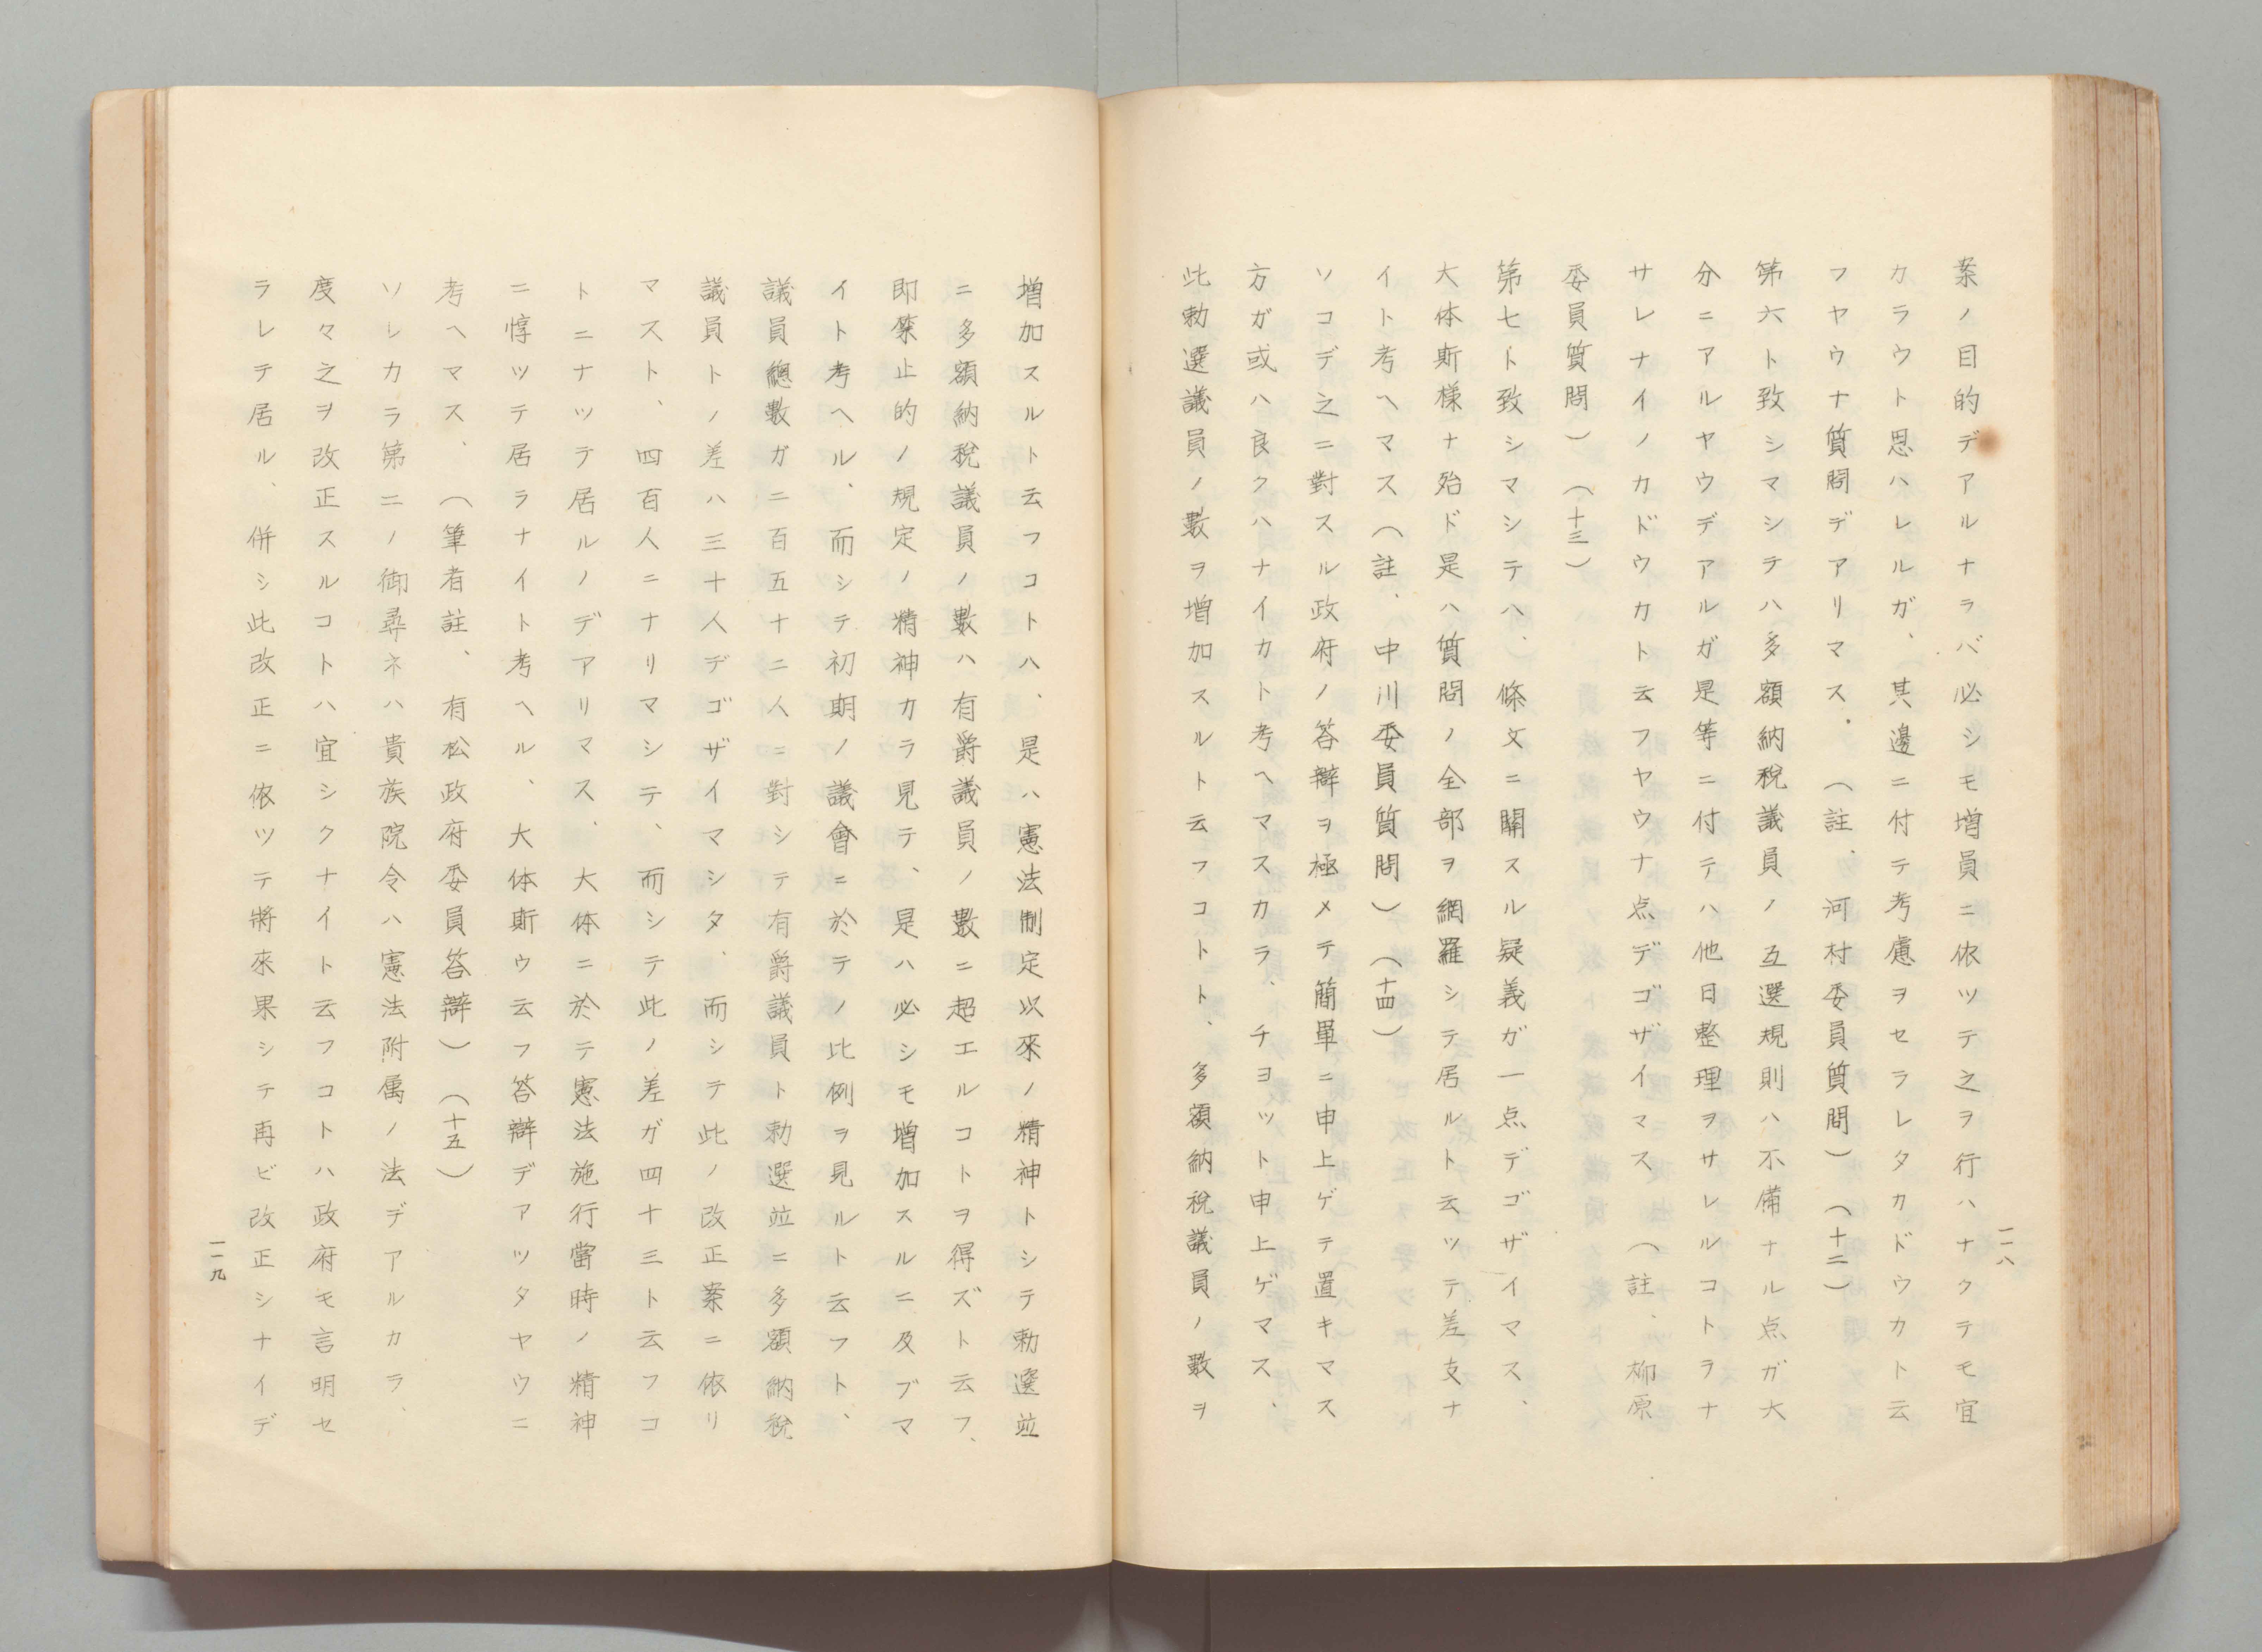 一一八
案ノ目的デアルナラバ必シモ増員ニ依ツテ之ヲ行ハナクテモ宜
カラウト思ハレルガ、其邊ニ付テ考慮ヲセラレタカドウカト云
フヤウナ質問デアリマス。（註、河村委員質問）（十二）
第六ト致シマシテハ多額納税議員ノ互選規則ハ不備ナル点ガ大
分ニアルヤウデアルガ是等ニ付テハ他日整理ヲサレルコトラナ
サレナイノカドウカト云フヤウナ点デゴザイマス（註、柳原
委員質問）（十三）
第七ト致シマシテハ、條文ニ關スル疑義ガ一点デゴザイマス、
大体斯様ナ殆ド是ハ質問ノ全部ヲ網羅シテ居ルト云ツテ差支ナ
イト考ヘマス（註、中川委員質問）（十四）
ソコデ之ニ對スル政府ノ答辯ヲ極メテ簡單ニ申上ゲテ置キマス
方ガ或ハ良クハナイカト考ヘマスカラ、チヨツト申上ゲマス、
此勅選議員ノ數ヲ増加スルト云フコトト、多額納税議員ノ數ヲ
増加スルト云フコトハ、是ハ憲法制定以來ノ精神トシテ勅選竝
ニ多額納税議員ノ數ハ有爵議員ノ數ニ超エルコトヲ得ズト云フ、
即禁止的ノ規定ノ精神カラ見テ、是ハ必シモ増加スルニ及ブマ
イト考ヘル、而シテ初期ノ議會ニ於テノ比例ヲ見ルト云フト、
議員總數ガ二百五十二人ニ對シテ有爵議員ト勅選竝ニ多額納税
議員トノ差ハ三十人デゴザイマシタ、而シテ此ノ改正案ニ依リ
マスト、四百人ニナリマシテ、而シテ此ノ差ガ四十三ト云フコ
トニナツテ居ルノデアリマス、大体ニ於テ憲法施行當時ノ精神
ニ惇ツテ居ラナイト考ヘル、大体斯ウ云フ答辯デアツタヤウニ
考ヘマス、（筆者註、有松政府委員答辯）（十五）
ソレカラ第二ノ御尋ネハ貴族院令ハ憲法附属ノ法デアルカラ、
度々之ヲ改正スルコトハ宜シクナイト云フコトハ政府モ言明セ
ラレテ居ル、併シ此改正ニ依ツテ將來果シテ再ビ改正シナイデ
一一九